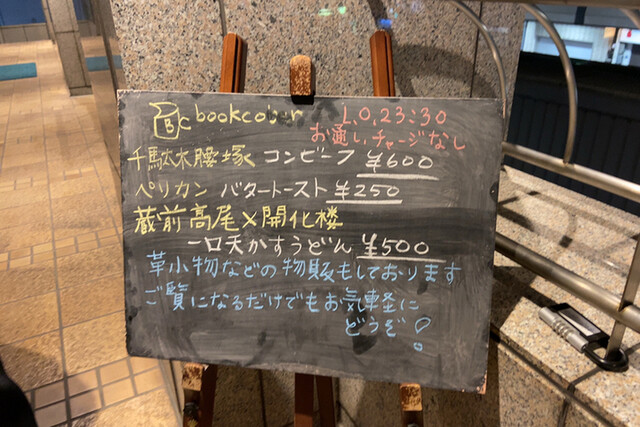 BC bookcoiser L,O,23:30
お通し、チャージなし
千駄木腰塚 コンビーフ ¥600
ペリカン バタートースト ¥250
蔵前髙尾×開化楼
一口天かすうどん ¥500
革小物などの物販もしております
ご覧になるだけでもお気軽に
どうぞ!